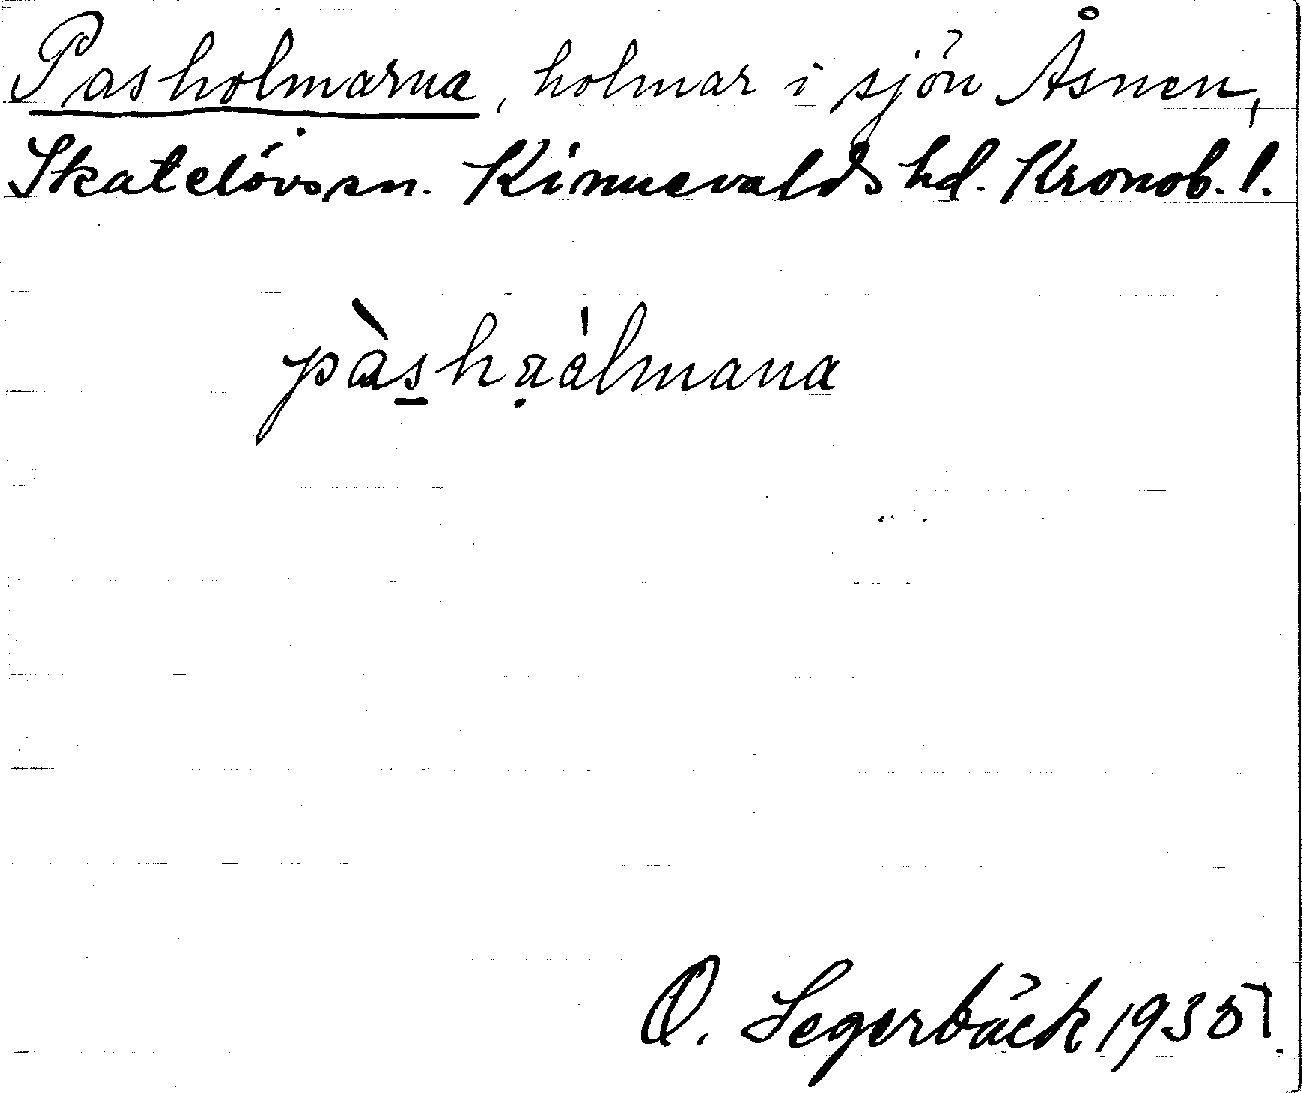 Pasholmarna, holmar i sjön Åsnen,
Skatelövs sn. Kinnevalds hd. Kronob. l.
pàshaálmana
O. Segerbäck 1935